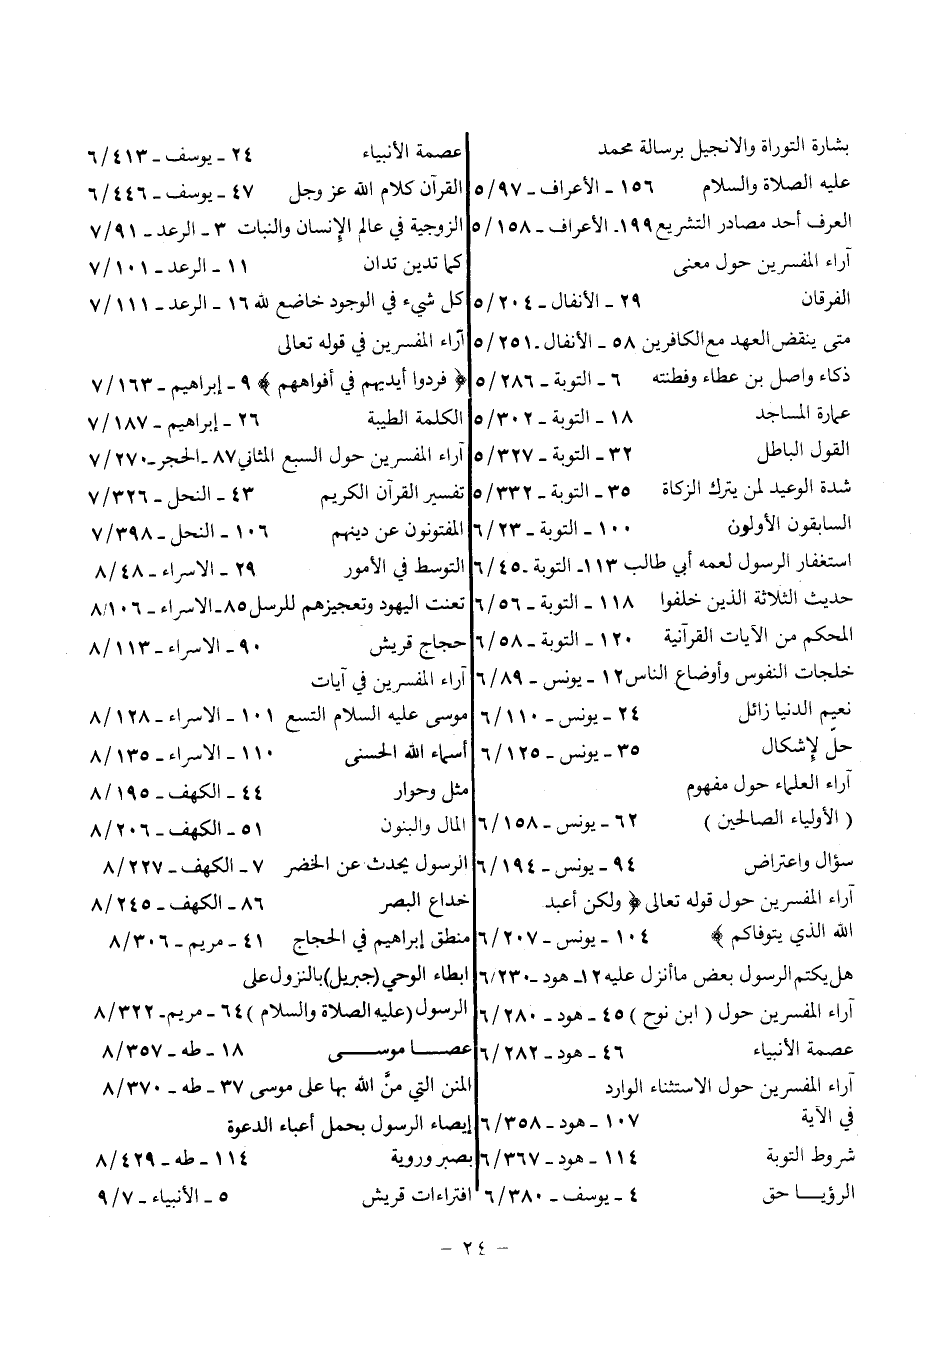 بشارة التوراة والانجيل برسالة محمد
عليه الصلاة والسلام ١٥٦ ـ الأعراف ـ ٥/٩٧
العرف أحد مصادر التشريع ١٩٩ـ الأعراف ـ ٥/١٥٨
آراء المفسرين حول معنى
الفرقان ٢٩ ـ الأنفال ـ ٥/٢٠٤
متى ينقض العهد مع الكافرين ٥٨ ـ الأنفال ـ ٥/٢٥١
ذكاء واصل بن عطاء وفطنته ٦ ـ التوبة ـ ٥/٢٨٦
عمارة المساجد ١٨ ـ التوبة ـ ٥/٣٠٢
القول الباطل ٣٢ ـ التوبة ـ ٥/٣٢٧
شدة الوعيد لمن يترك الزكاة ٣٥ ـ التوبة ـ ٥/٣٣٢
السابقون الأولون ١٠٠ ـ التوبة ـ ٦/٢٣
استغفار الرسول لعمه أبي طالب ١١٣ـ التوبة ـ ٦/٤٥
حديث الثلاثة الذين خلفوا ١١٨ ـ التوبة ـ ٦/٥٦
المحكم من الآيات القرآنية ١٢٠ ـ التوبة ـ ٦/٥٨
خلجات النفوس وأوضاع الناس ١٢ ـ يونس ـ ٦/٨٩
نعيم الدنيا زائل ٢٤ ـ يونس ـ ٦/١١٠
حلّ لإشكال ٣٥ ـ يونس ـ ٦/١٢٥
آراء العلماء حول مفهوم
( الأولياء الصالحين ) ٦٢ ـ يونس ـ ٦/١٥٨
سؤال واعتراض ٩٤ ـ يونس ـ ٦/١٩٤
آراء المفسرين حول قوله تعالى ﴿ ولكن أعبد
الله الذي يتوفاكم ﴾ ١٠٤ ـ يونس ـ ٦/٢٠٧
هل يكتم الرسول بعض ماأنزل عليه ١٢ـ هود ـ ٦/٢٣٠
آراء المفسرين حول ( ابن نوح ) ٤٥ ـ هود ـ ٦/٢٨٠
عصمة الأنبياء ٤٦ ـ هود ـ ٦/٢٨٢
آراء المفسرين حول الاستثناء الوارد
في الآية ١٠٧ ـ هود ـ ٦/٣٥٨
شروط التوبة ١١٤ ـ هود ـ ٦/٣٦٧
الرؤيـــا حق ٤ ـ يوسف ـ ٦/٣٨٠
عصمة الأنبياء ٢٤ ـ يوسف ـ ٦/٤١٣
القرآن كلام الله عز وجل ٤٧ ـ يوسف ـ ٦/٤٤٦
الزوجية في عالم الإنسان والنبات ٣ ـ الرعد ـ ٧/٩١
كما تدين تدان ١١ ـ الرعد ـ ٧/١٠١
كل شيء في الوجود خاضع لله ١٦ ـ الرعد ـ ٧/١١١
آراء المفسرين في قوله تعالى
﴿ فردوا أيديهم في أفواههم ﴾ ٩ ـ إبراهيم ـ ٧/١٦٣
الكلمة الطيبة ٢٦ ـ إبراهيم ـ ٧/١٨٧
آراء المفسرين حول السبع المثاني ٨٧ ـ الحجر ـ ٧/٢٧٠
تفسير القرآن الكريم ٤٣ ـ النحل ـ ٧/٣٢٦
المفتونون عن دينهم ١٠٦ ـ النحل ـ ٧/٣٩٨
التوسط في الأمور ٢٩ ـ الاسراء ـ ٨/٤٨
تعنت اليهود وتعجيزهم للرسل ٨٥ـ الاسراء ـ ٨/١٠٦
حجاج قريش ٩٠ ـ الاسراء ـ ٨/١١٣
آراء المفسرين في آيات
موسى عليه السلام التسع ١٠١ ـ الاسراء ـ ٨/١٢٨
أسماء الله الحسنى ١١٠ ـ الاسراء ـ ٨/١٣٥
مثل وحوار ٤٤ ـ الكهف ـ ٨/١٩٥
المال والبنون ٥١ ـ الكهف ـ ٨/٢٠٦
الرسول يحدث عن الخضر ٧ ـ الكهف ـ ٨/٢٢٧
خداع البصر ٨٦ ـ الكهف ـ ٨/٢٤٥
منطق إبراهيم في الحجاج ٤١ ـ مريم ـ ٨/٣٠٦
ابطاء الوحي (جبريل) بالنزول على
الرسول (عليه الصلاة والسلام ) ٦٤ ـ مريم ـ ٨/٣٢٢
عصـــا موســـى ١٨ ـ طه ـ ٨/٣٥٧
المنن التي منَّ الله بها على موسى ٣٧ ـ طه ـ ٨/٣٧٠
إيصاء الرسول بحمل أعباء الدعوة
بصبر وروية ١١٤ ـ طه ـ ٨/٤٢٩
افتراءات قريش ٥ ـ الأنبياء ـ ٩/٧
ـ ٢٤ ـ